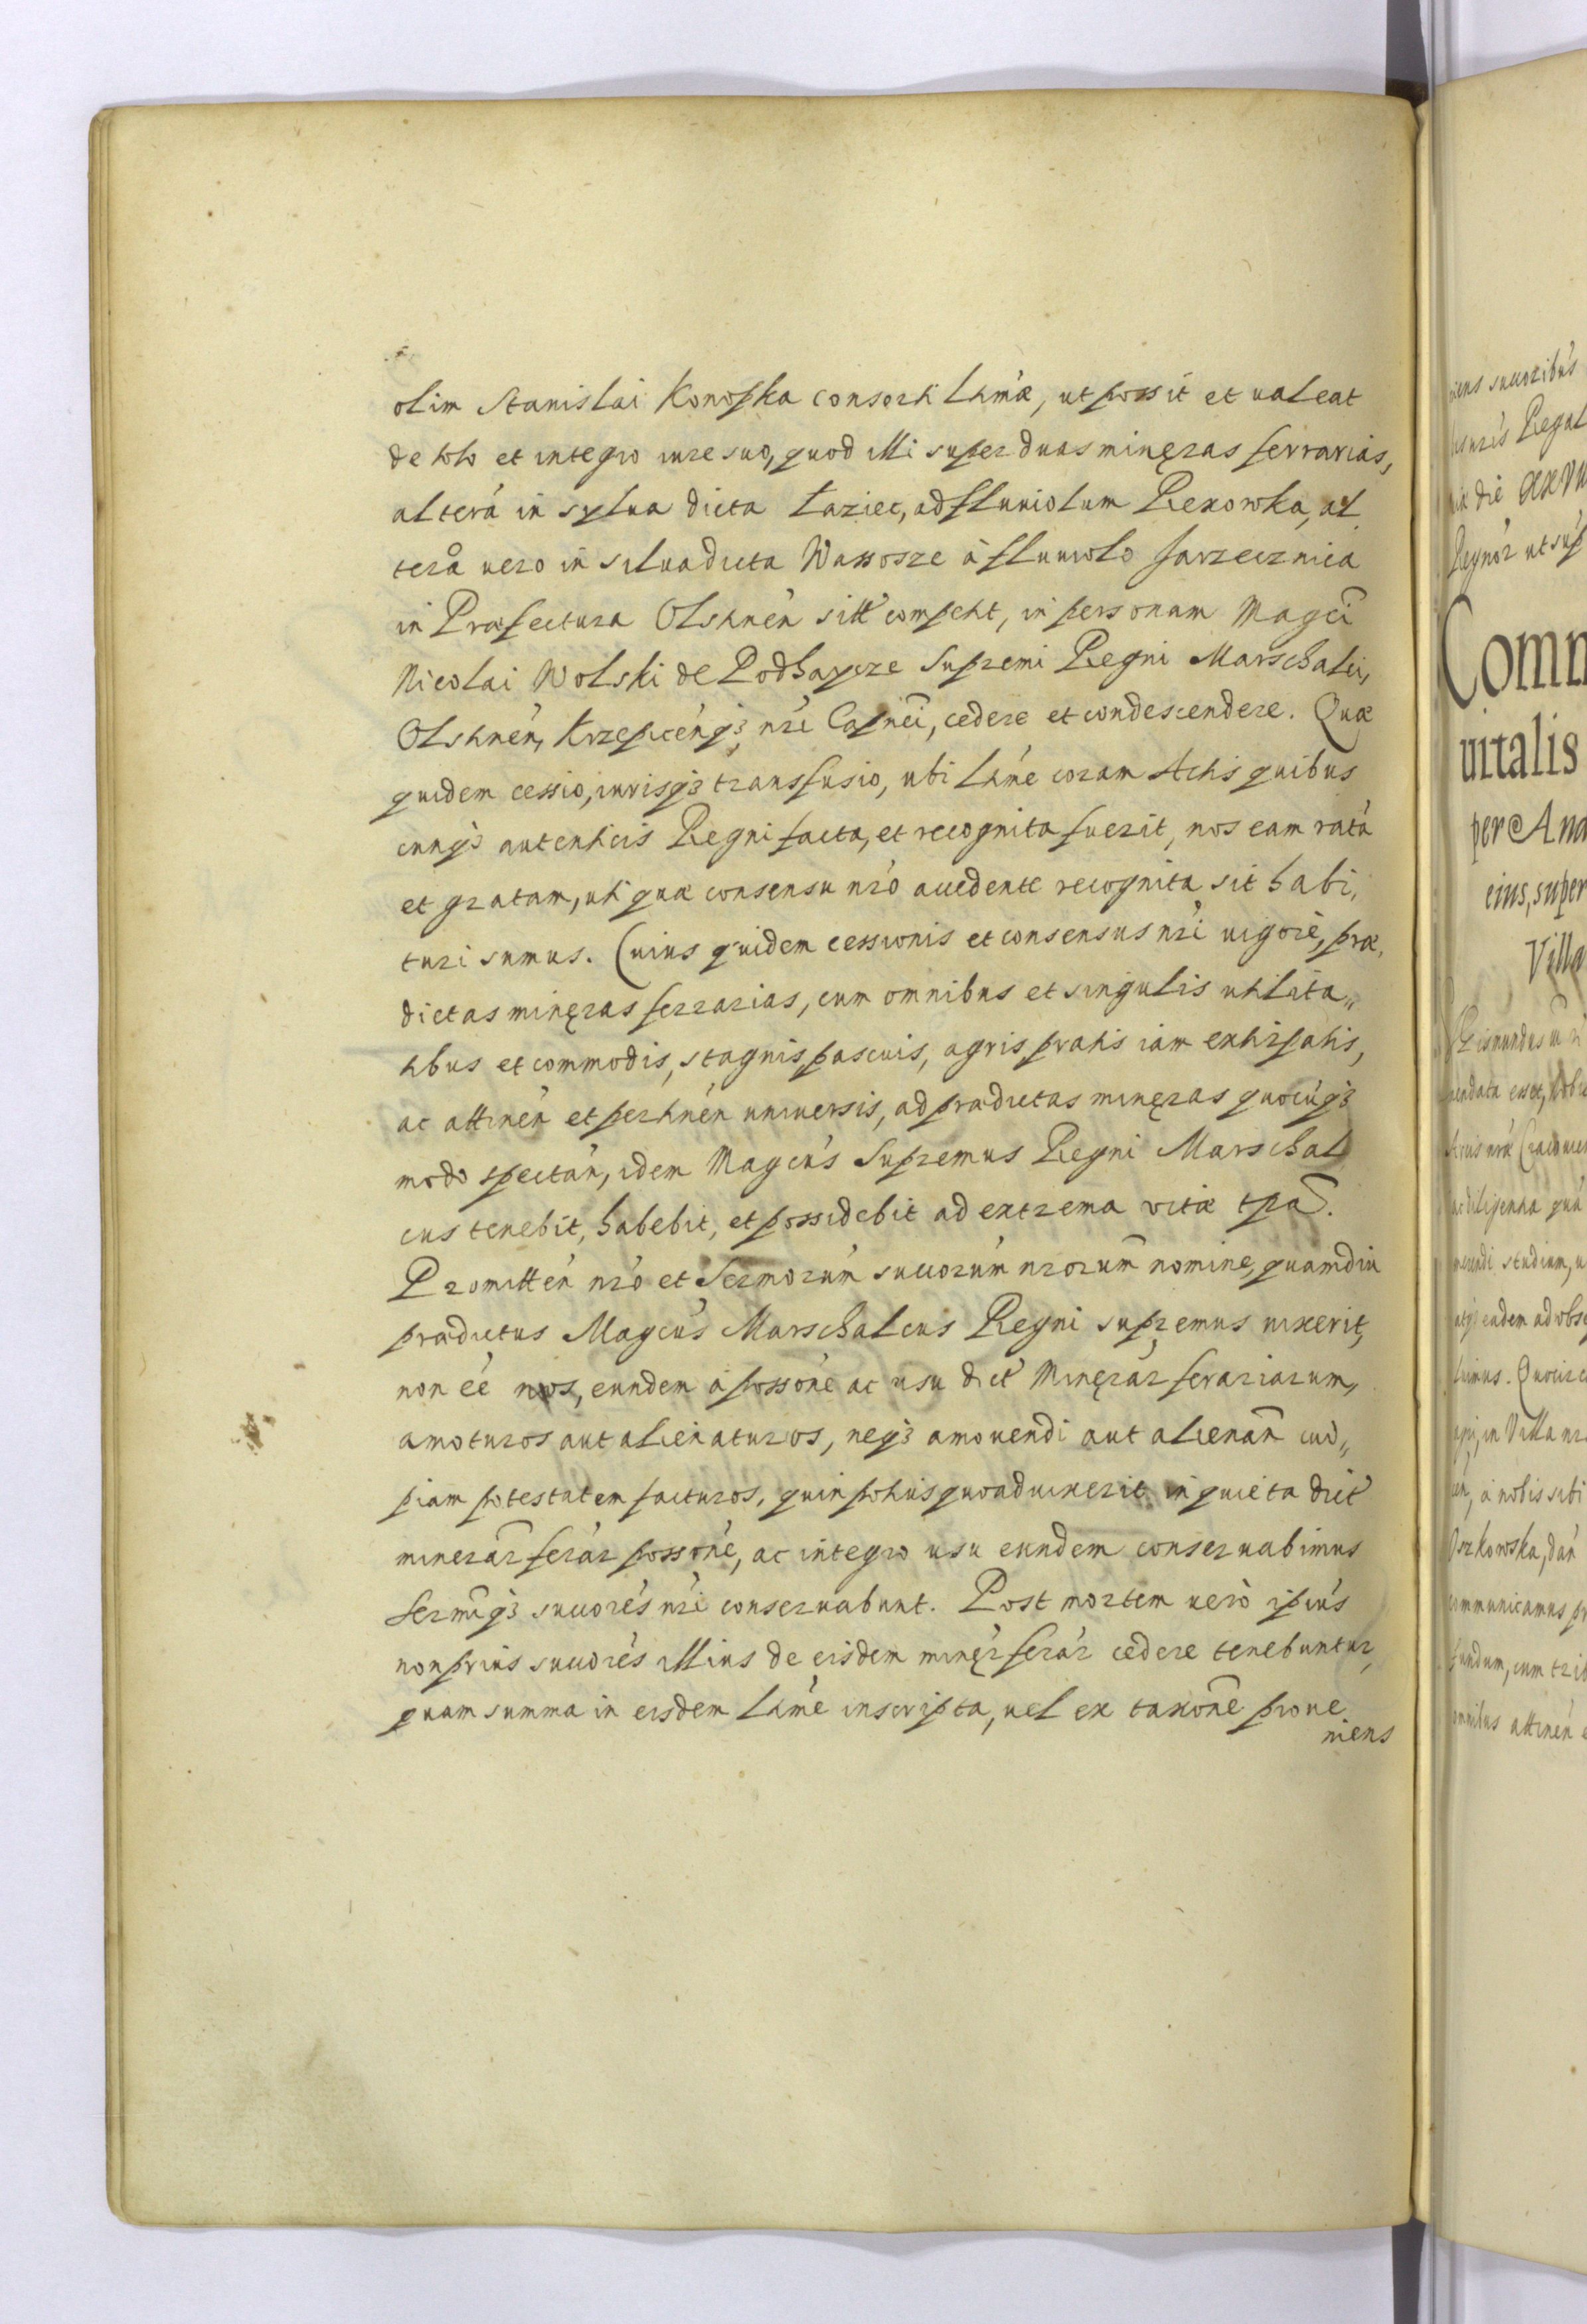 olim Stanislai Konopka consorti Ltmæ, ut possit et ualeat
de toto et integro iure suo, quod illi super duas minęras ferrarias,
alterá in sylua dicta Łaziec, ad fluuiolum Rexowka, al
terå uero in silua dicta Wąssosze à fluuiolo Jarzecznica
in Præfectura Olstinen̄ sitt competit, in personam Magci
Nicolai Wolski de Podhaycze Supremi Regni Marschalci,
Olstinen̄, Krzepicen̄qз nr̄i Capnei, cedere et condescendere. Quæ
quidem cessio, iurisqз transfusio, ubi Ltmé coram Actis quibus
cunqз autenticis Regni facta, et recognita fuerit, nos eam ratá
et gratam, uti quæ consensu nr̄o accedente recognita sit habi,
turi sumus. Cuius quidem cessionis et consensus nr̄i uigore, præ,
dictas minęras ferrarias, cum omnibus et singulis utilita„
tibus et commodis, stagnis, pascuis, agris, pratis iam extirpatis,
ac attinén et pertinén uniuersis, ad prædictas minęras quocúqз
modo spectán, idem Magcús Supremus Regni Marschal
cus tenebit, habebit, et possidebit ad extrema vitæ tpa̅.
Promittén nr̄o et Sermorúm succorúm nrorum̄ nomine, quamdiu
prædictus Magcús Marschalcus Regni supremus uixerit,
non eé nos, eundem à possoné ac usu dict́ Minęrár ferariarum,
amoturos aut alienaturos, neqз amouendi aut alienan̄ cui„
piam potestatem facturos, quin potius quoad uixerit in quieta dict́
minerar̄ ferár possoné, ac integro usu eundem conseruabimus
Sermíqз succorés nr̄i conseruabunt. Post mortem ueró ipiús
non prius succorés illius de eisdem minęŕ ferár cedere tenebuntur,
quam summa in eisdem Ltmé inscripta, uel ex taxone̅ proue
niens